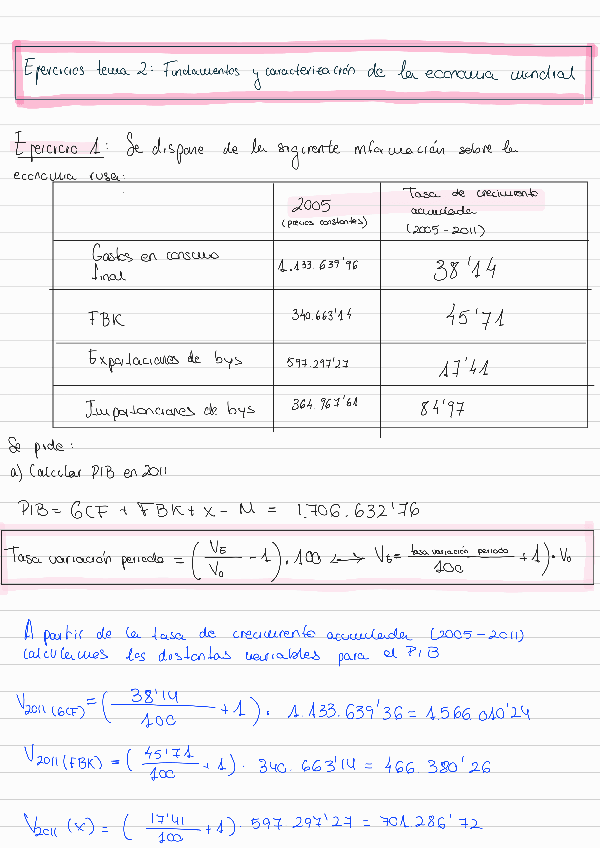 Ejercicios tema 2: Fundamentos y caracterización de la economía mundial
Ejercicio 1: Se dispone de la siguiente información sobre la
economía rusa:
2005
(precios constantes)
Tasa de crecimiento
acumulada
(2005-2011)
Gastos en consumo
final
1.133.639'96
38'14
FBK
340.663'14
45'71
Exportaciones de bys
597.297'27
17'41
Importanciones de bys
364.967'61
84'97
Se pide:
a) Calcular PIB en 2011
PIB = GCF + FBK + X - M = 1.706.632'76
Tasa variación periodo = (V_t/V_0 - 1) · 100 <-> V_t = (tasa variación periodo/100 + 1) · V_0
A partir de la tasa de crecimiento acumulada (2005-2011)
calculamos las distintas variables para el PIB
V_2011 (GCF) = (38'14/100 + 1) · 1.133.639'36 = 1.566.010'24
V_2011 (FBK) = (45'71/100 + 1) · 340.663'14 = 466.380'26
V_2011 (X) = (17'41/100 + 1) · 597.297'27 = 701.286'72